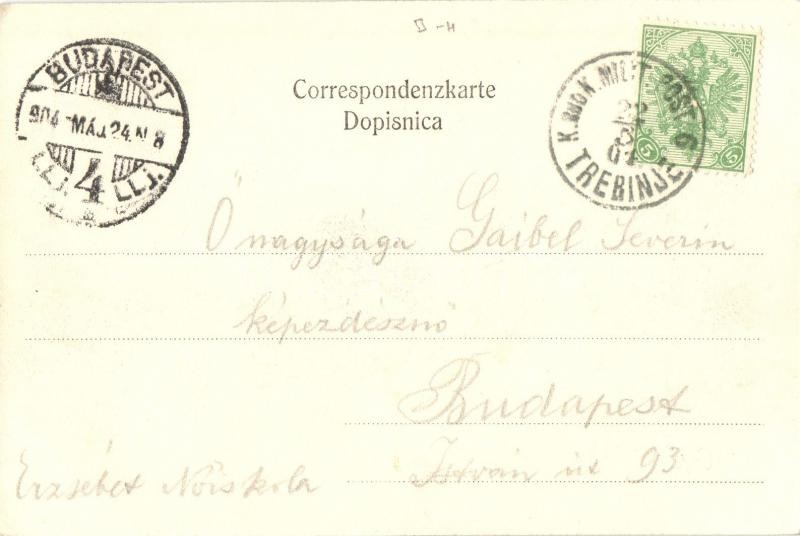 II-H
BUDAPEST
904 MÁJ. 24. N 8
4
Correspondenzkarte
Dopisnica
K. UND K. MILIT. POST 6
22
5
04
TREBINJE
5 5
Őnagysága Gaibel Severin
képezdésznő
Budapest
István út 93
Erzsébet Nőiskola